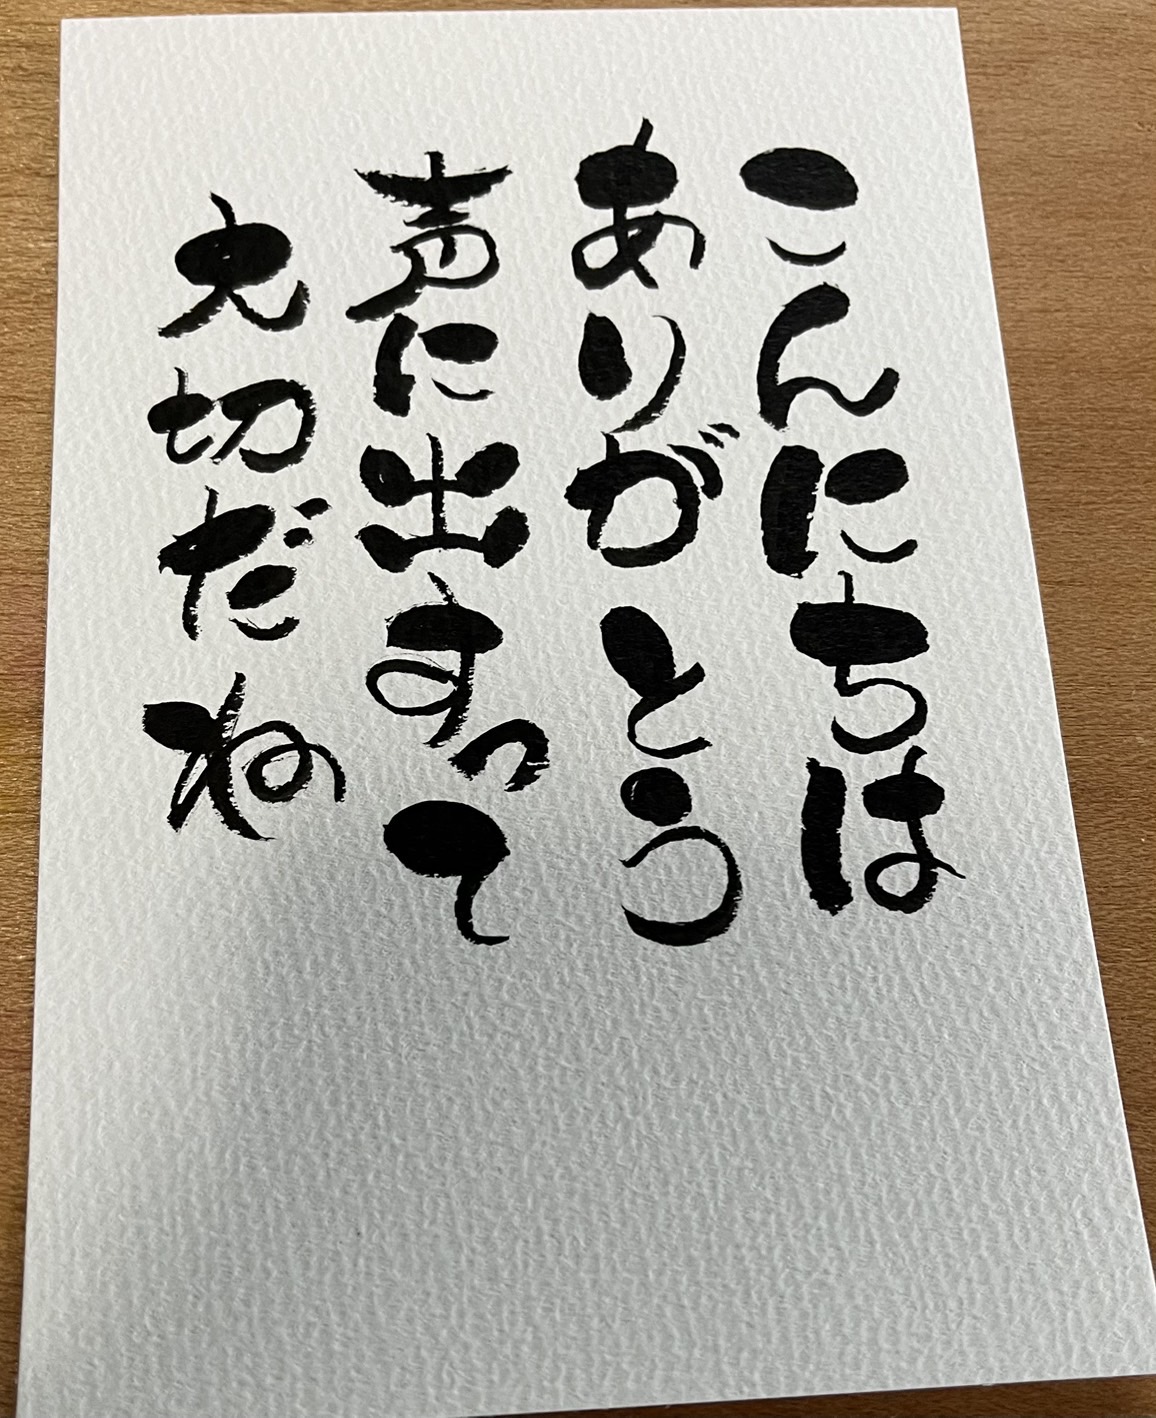 こんにちは
ありがとう
声に出すって
大切だね